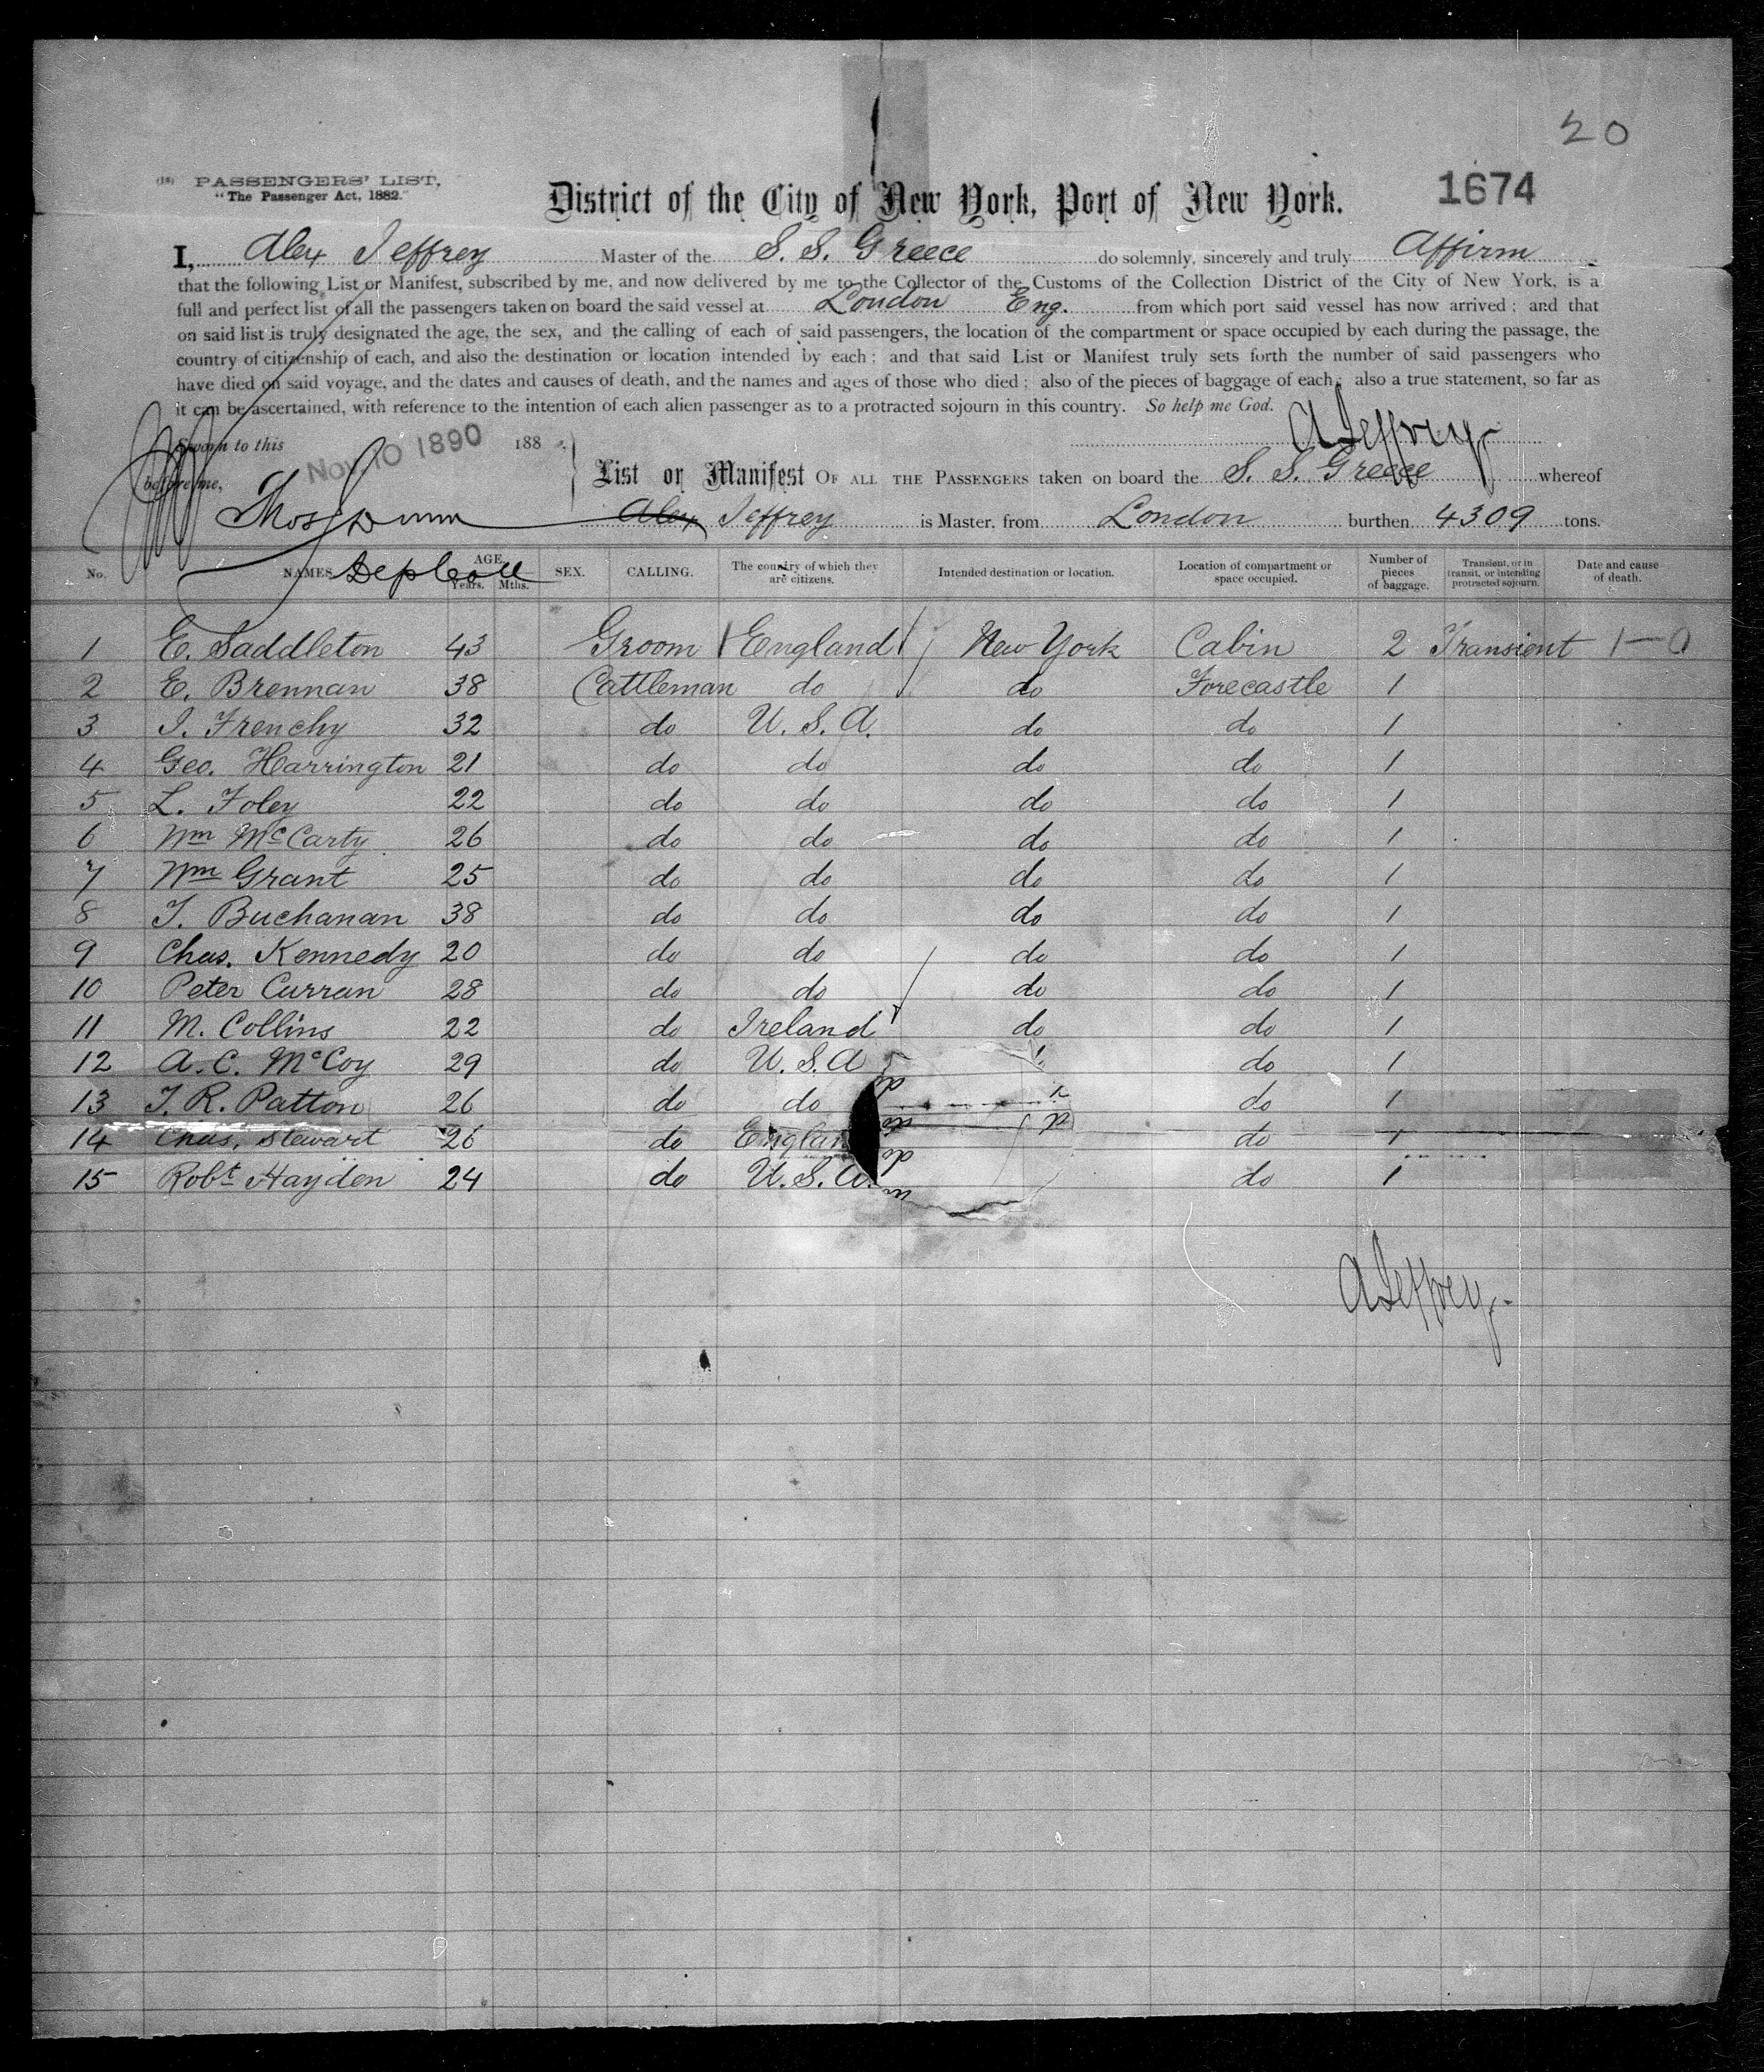 20
(18) PASSENGERS' LIST,
"The Passenger Act, 1882."
District of the City of New York, Port of New York.
1674
I, Alex Jeffrey Master of the S. S. Greece do solemnly, sincerely and truly Affirm
that the following List or Manifest, subscribed by me, and now delivered by me to the Collector of the Customs of the Collection District of the City of New York, is a
full and perfect list of all the passengers taken on board the said vessel at London Eng. from which port said vessel has now arrived; and that
on said list is truly designated the age, the sex, and the calling of each of said passengers, the location of the compartment or space occupied by each during the passage, the
country of citizenship of each, and also the destination or location intended by each; and that said List or Manifest truly sets forth the number of said passengers who
have died on said voyage, and the dates and causes of death, and the names and ages of those who died; also of the pieces of baggage of each; also a true statement, so far as
it can be ascertained, with reference to the intention of each alien passenger as to a protracted sojourn in this country. So help me God.
Sworn to this Nov 10 1890 188
A Jeffrey
before me,
List or Manifest OF ALL THE PASSENGERS taken on board the S. S. Greece whereof
Alex Jeffrey is Master, from London burthen 4309 tons.
Dep Coll
No. NAMES. AGE. Years. Mths. SEX. CALLING. The country of which they are citizens. Intended destination or location. Location of compartment or space occupied. Number of pieces of baggage. Transient, or in transit, or intending protracted sojourn. Date and cause of death.
1 E. Saddleton 43 Groom England New York Cabin 2 Transient 1-0
2 E. Brennan 38 Cattleman do do Forecastle 1
3 I. Frenchy 32 do U. S. A. do do 1
4 Geo. Harrington 21 do do do do 1
5 L. Foley 22 do do do do 1
6 Wm McCarty 26 do do do do 1
7 Wm Grant 25 do do do do 1
8 T. Buchanan 38 do do do do 1
9 Chas. Kennedy 20 do do do do 1
10 Peter Curran 28 do do do do 1
11 M. Collins 22 do Ireland do do 1
12 A. C. McCoy 29 do U. S. A do 1
13 T. R. Patton 26 do do do 1
14 Chas. Stewart 26 do England do 1
15 Robt Hayden 24 do U. S. A. do 1
A Jeffrey